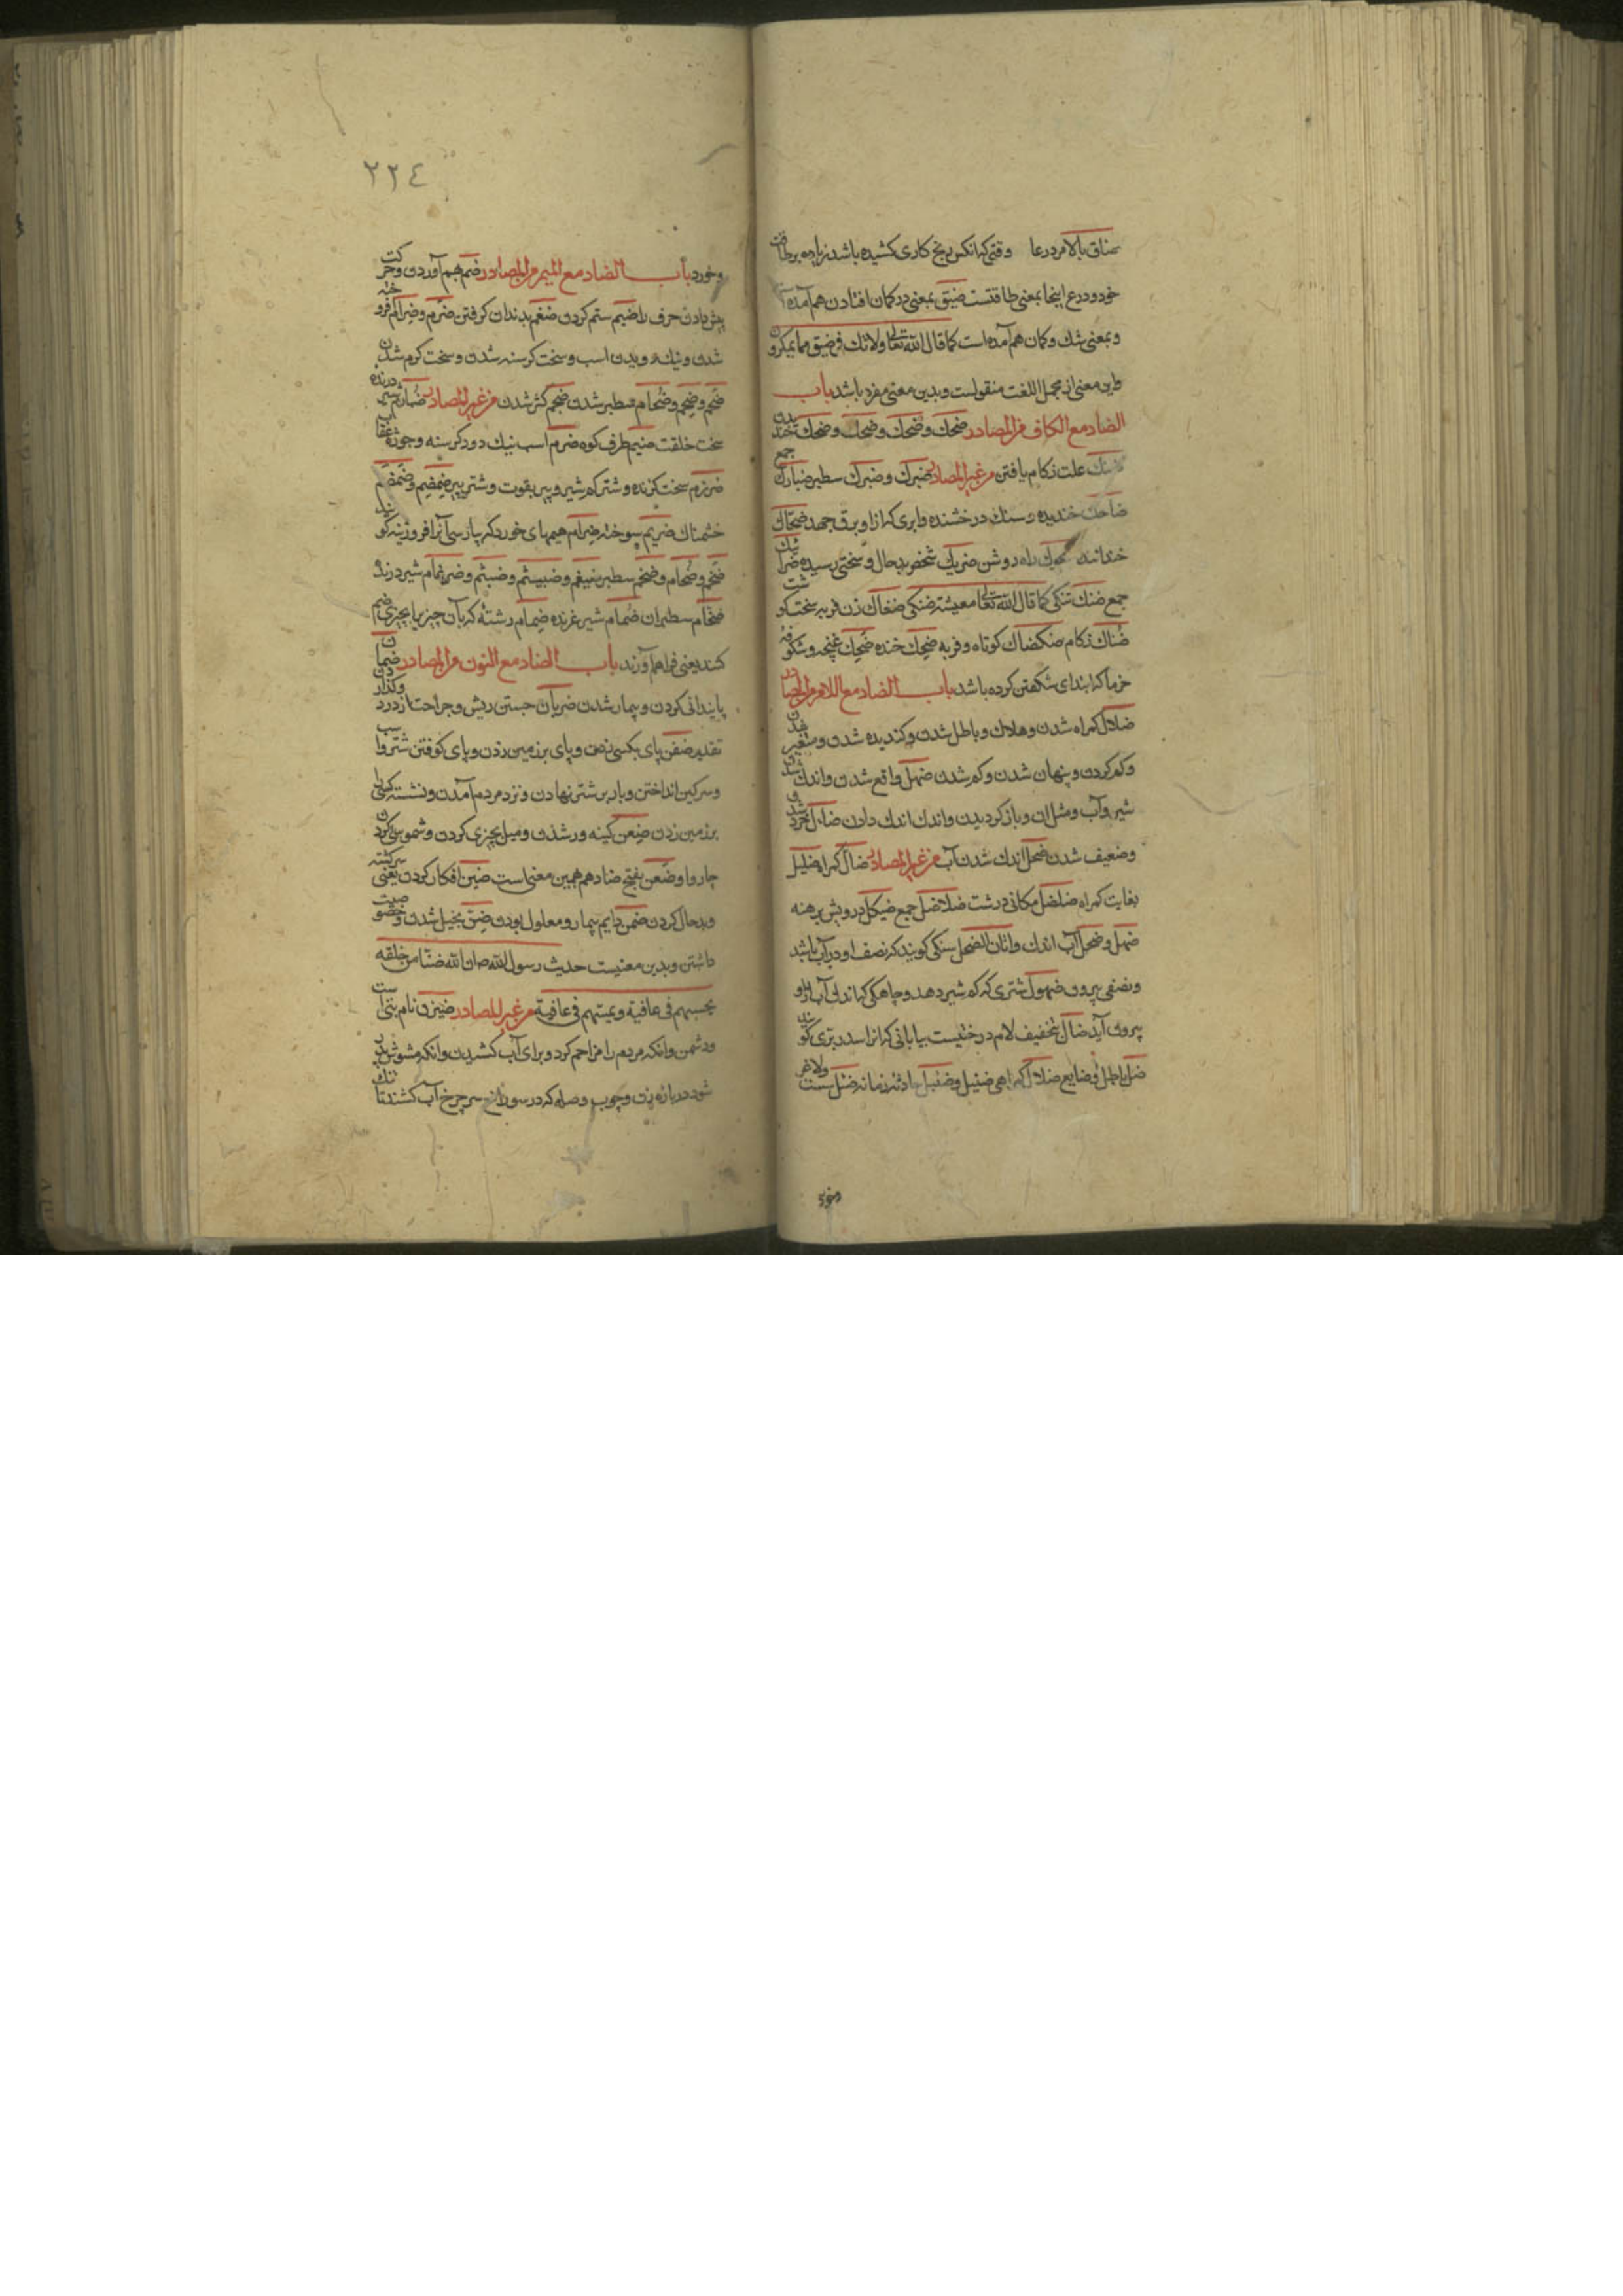 ضاق بالامر ذرعا وقتی که انکس برنج کاری کشیده باشد زیاده بر طاقت
خود و درع اینجا بمعنی طاقتست ضیق بمعنی در کمان افتادن هم آمده
و بمعنی شك و کمان هم آمده است کما قال الله تعالی ولا تك فی ضیق مما یمکرون
و این معنی از مجمل اللغت منقولست و بدین معنی مفرد باشد باب
الضاد مع الکاف من المصادر ضحك و ضحك و ضحك و ضحك خندیدن
علت زکام یافتن من غیر المصادر ضبرك و ضبرك سطبر ضبارك جمع
ضاحك خندیده و سنك درخشنده و ابری که از او برق جهد ضحاك
خنداننده راه روشن ضریك شخص بدحال و سختی رسیده
جمع ضنك تنکی کما قال الله تعالی معیشة ضنکی ضنعاك زن فربه سخت کوشت
ضناك زکام ضکضاك کوتاه و فربه ضحك خنده ضحك غنچه و شکوفه
خرما که ابتدای شکفتن کرده باشد باب الضاد مع اللام من المصادر
ضلال کمراه شدن و هلاك و باطل شدن و کندیده شدن و متغیر شدن
و کم کردن و پنهان شدن و کم شدن ضهل واقع شدن و اندك شدن
شیر و آب و مثل ان و باز کردیدن و اندك اندك دادن خرد شدن
و ضعیف شدن ضحل اندك شدن آب من غیر المصادر ضال کمراه ضلیل
بغایت کمراه ضلضل مکانی درشت ضلاضل جمع ضیکل درویش برهنه
ضهل و ضحل آب اندك و اتان الضحل سنکی کویند که نصف او در آب باشد
و نصفی بیرون ضهول شتری که کم شیر دهد و چاهکی که اندك آب از او
بیرون آید ضال بتخفیف لام درختیست بیابانی که انرا سدر بری کویند
ضل باطل و ضایع ضلال کمراهی ضئیل و ضئبل حادثه زمانه ضئل سست ولاغر
و خورد
٢٢٤
و خورد باب الضاد مع المیم من المصادر ضم بهم آوردن و حرکت
پیش دادن حرف را ضیم ستم کردن ضغم بدندان کرفتن ضرم و ضرام افروخته
شدن و نیك دویدن اسب و سخت کرسنه شدن و سخت کرم شدن
ضخم و ضخم و ضخام سطبر شدن ضجم کژ شدن من غیر المصادر ضبارم شیر درنده
سخت خلقت ضیم طرف کوه ضرم اسب نیك دو و کرسنه و جوژه عقاب
ضرزم سخت کزنده و شتر کم شیر و پیر بقوت و شتر پیر ضمضم و ضمضم
خشمناك ضریم سوخته ضرام هیمهای خورد که پارسی آنرا افروزینه کویند
ضخم و ضخام و ضخم سطبر ضیغم و ضبیثم و ضبثم و ضرغام شیر درنده
ضخام سطبران ضمام شیر غرنده ضمام رشته که بآن چیز را بچیزی ضم
کنند یعنی فراهم آورند باب الضاد مع النون من المصادر ضمان
پایندانی کردن و بیمار شدن ضربان جستن ریش و جراحت از درد
تقدیر ضفن پای بکسی زدن و پای بر زمین زدن و پای کوفتن شتر
و سرکین انداختن و بار بر شتر نهادن و نزد مردم آمدن و نشسته
بر زمین زدن ضغن کینه ورشدن و میل بچیزی کردن و شموس کردن
چاروا و ضغن بفتح ضاد هم همین معنی است ضین افکار کردن یعنی سرکشته
و بدحال کردن ضمن دایم بیمار و معلول بودن ضن بخیل شدن و خصوصیت
داشتن و بدین معنیست حدیث رسول الله ص ان لله ضنا من خلقه
یحییهم فی عافیة و یمیتهم فی عافیة من غیر المصادر ضیزن نام بتی است
و دشمن و انکه مردم را مزاحم کرد و برای آب کشیدن و انکه
شود در باره زن و چوب وصله که در سوراخ سر چرخ آب کشند تا تنك